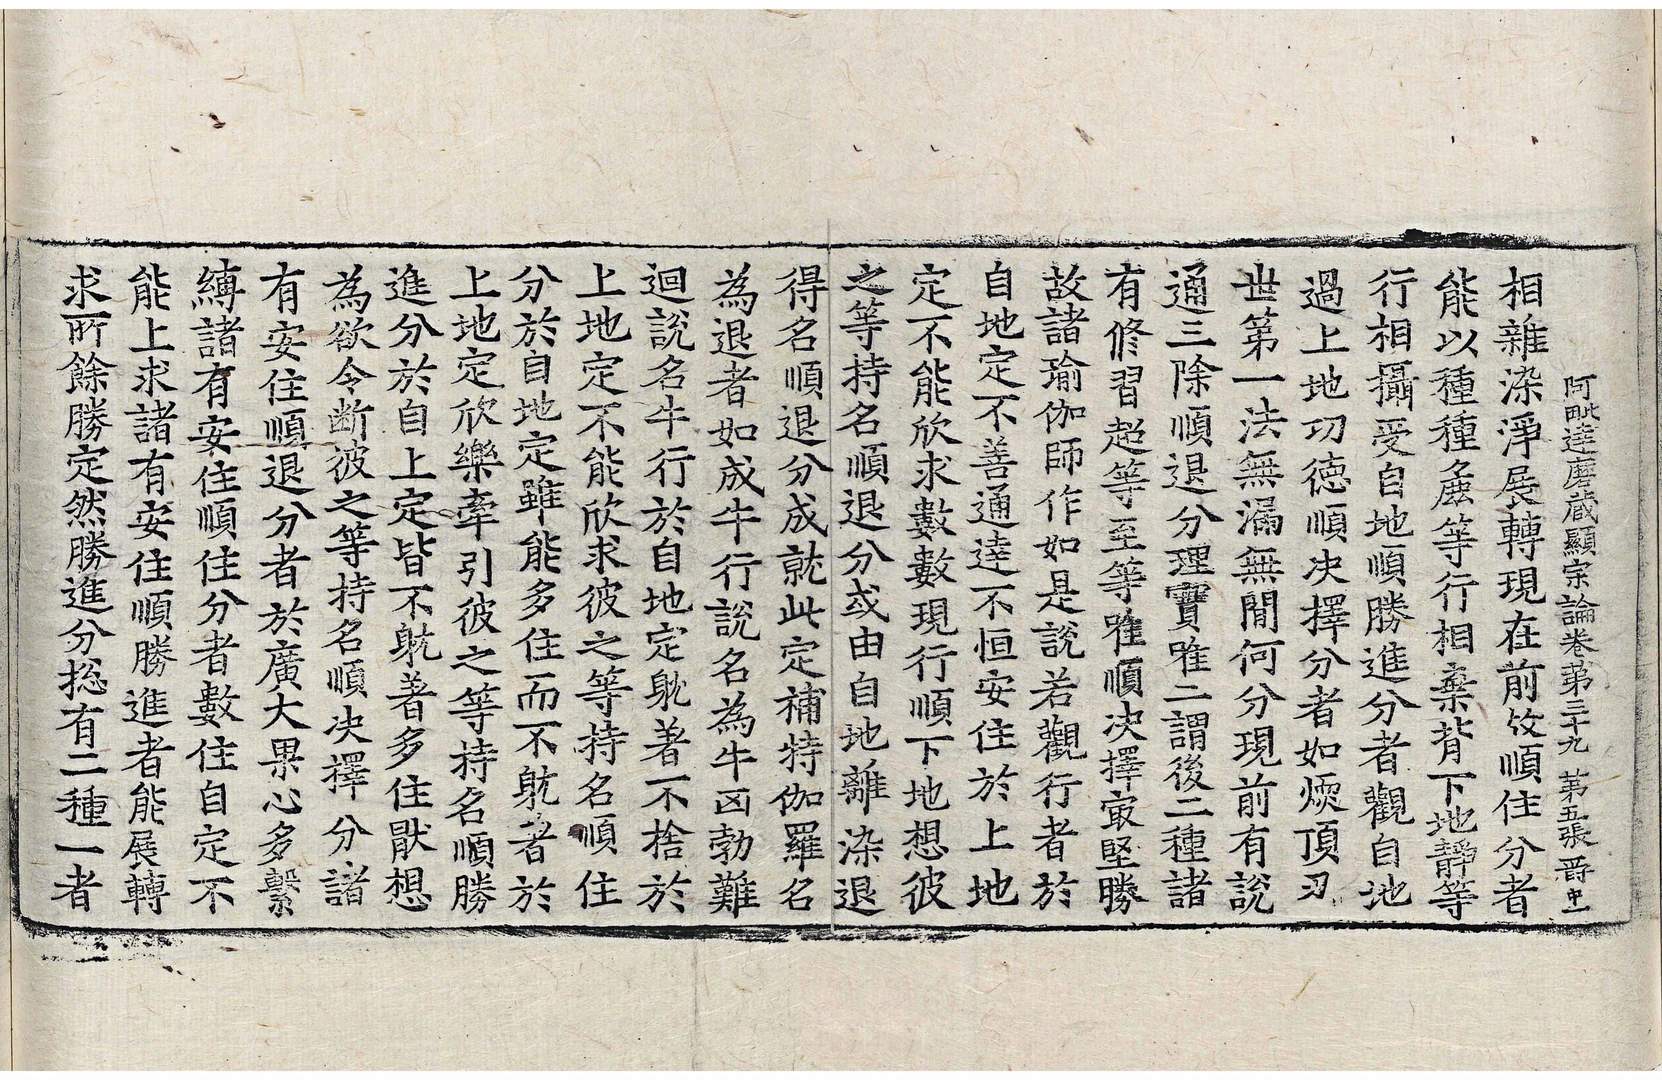 阿毗達磨蔵顯宗論卷第三十九　第五張　爵
相雜染淨展轉現在前故順住分者
能以種種麁等行相棄背下地靜等
行相攝受自地順勝進分者觀自地
過上地功德順决擇分者如煗頂忍
世第一法無漏無間何分現前有說
通三除順退分理實唯二謂後二種諸
有修習超等至等唯順决擇㝡堅勝
故諸瑜伽師作如是說若觀行者於
自地定不善通達不恒安住於上地
定不能欣求數數現行順下地想彼
之等持名順退分或由自地離染退
得名順退分成就此定補特伽羅名
為退者如成牛行說名為牛凶勃難
迴說名牛行於自地定躭著不捨於
上地定不能欣求彼之等持名順住
分於自地定雖能多住而不躭著於
上地定欣樂牽引彼之等持名順勝
進分於自上定皆不躭著多住猒想
為欲令断彼之等持名順决擇分諸
有安住順退分者於廣大果心多繫
縛諸有安住順住分者數住自定不
能上求諸有安住順勝進者能展轉
求所餘勝定然勝進分捴有二種一者